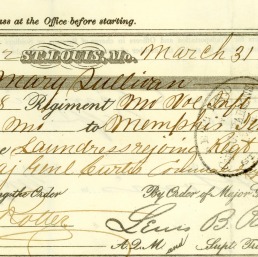 ss at the Office before starting.
2 ST. LOUIS, Mo. March 31
Mary Sullivan
8 Regiment Mo Vol Inf
Mo to Memphis Ten
Laundress rejoing Regt
Genl Curtis
ing the Order By Order of Major
Potter Lewis B. P
A.Q.M and Supt. Tr